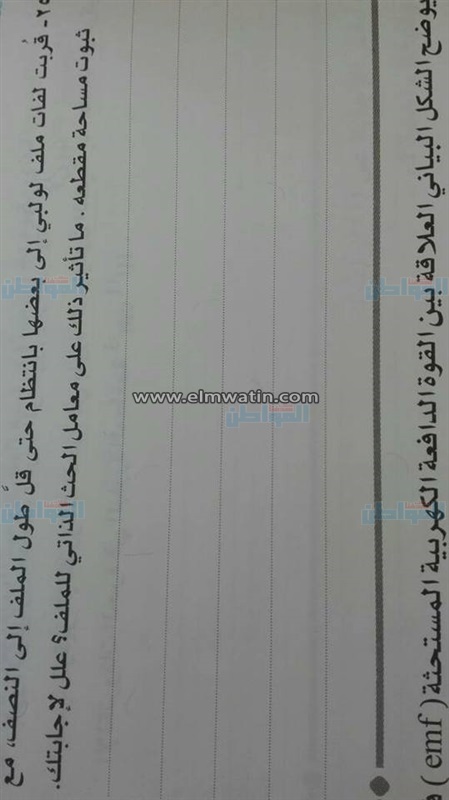 ٢٥- قُربت لفات ملف لولبي إلى بعضها بانتظام حتى قلَّ طول الملف إلى النصف، مع
ثبوت مساحة مقطعه. ما تأثير ذلك على معامل الحث الذاتي للملف؟ علل لإجابتك.
www.elmwatin.com
المواطن
المواطن
المواطن
المواطن
المواطن
يوضح الشكل البياني العلاقة بين القوة الدافعة الكهربية المستحثة (emf)